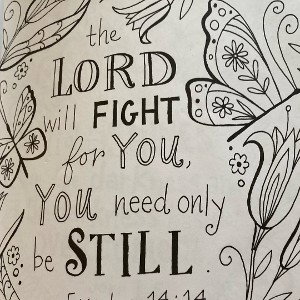 the
LORD
will FIGHT
for YOU,
YOU need only
be STILL.
14:14